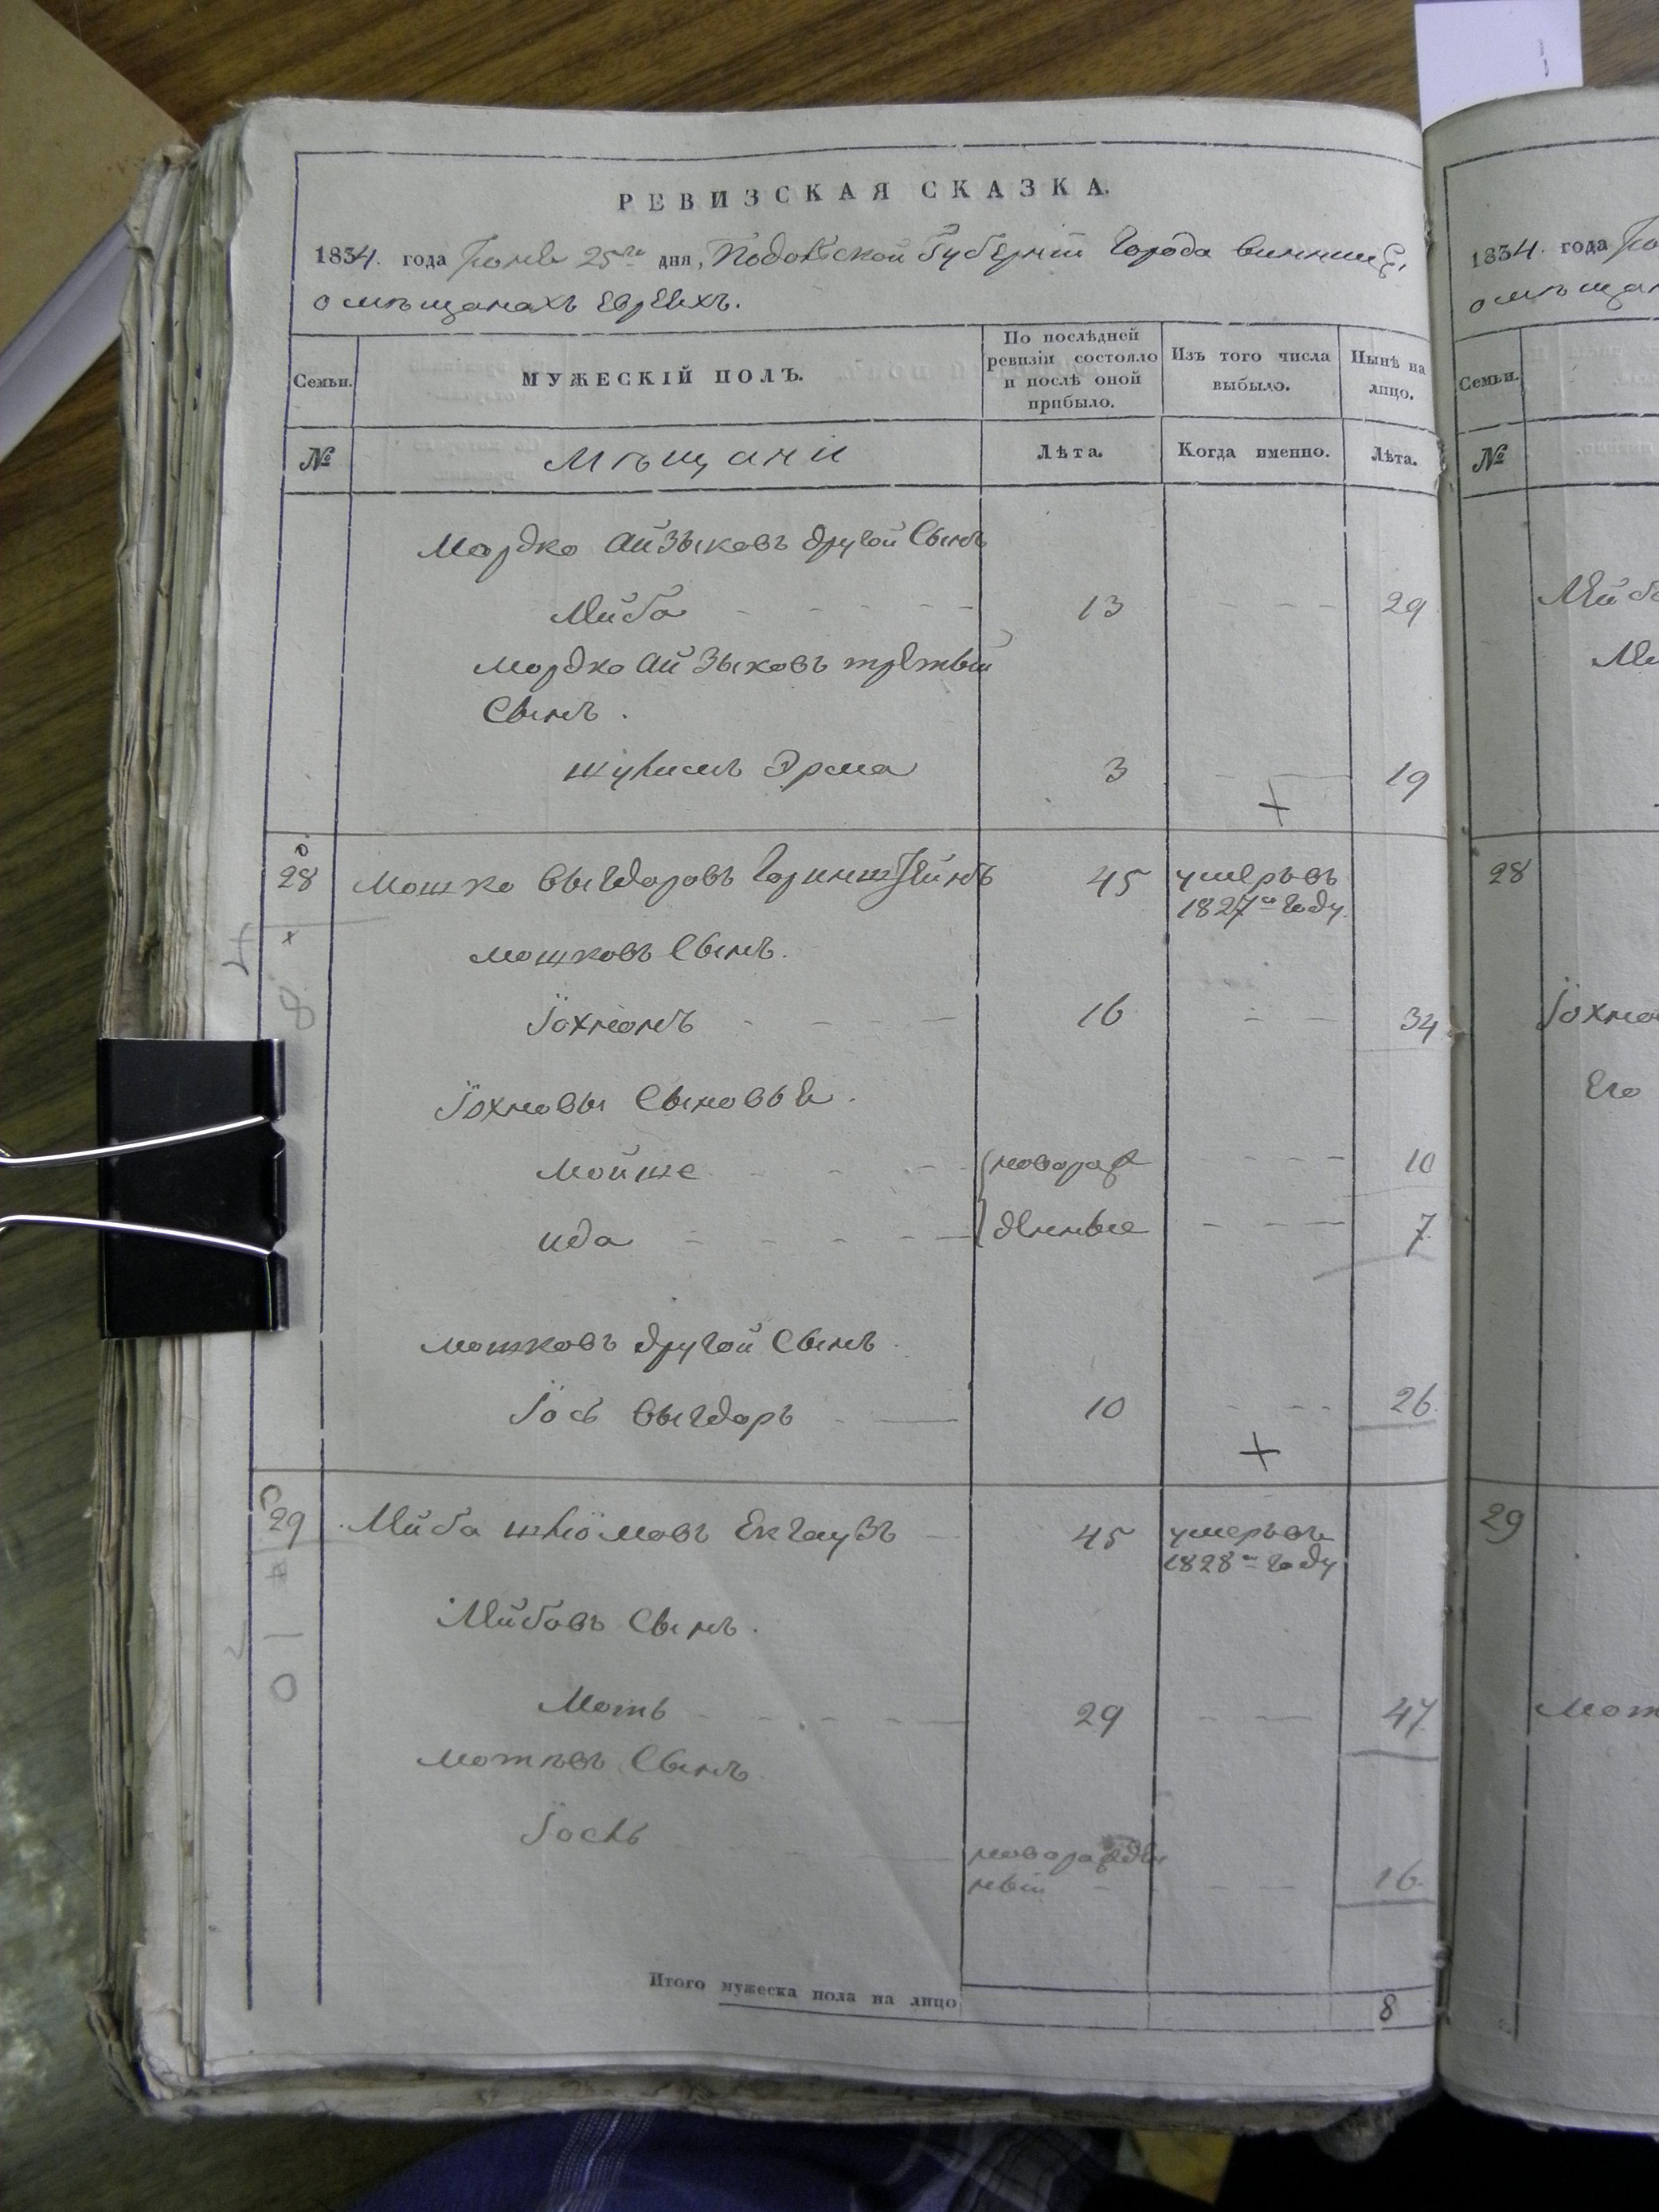 РЕВИЗСКАЯ СКАЗКА.
1834. года Іюня 25го дня, Подольской Губерніи Города Винницы,
о мѣщанахъ евреяхъ.
Семьи.
МУЖЕСКІЙ ПОЛЪ.
По послѣдней ревизіи состояло и послѣ оной прибыло.
Изъ того числа выбыло.
Нынѣ на лицо.
№
Мѣщане
Лѣта.
Когда именно.
Лѣта.
Мордко Айзыковъ другой Сынъ
Лейба 13 29
Мордко Айзыковъ третьій
Сынъ.
3 19
28 Мошко 45 умеръ въ
1827м году
Мошковъ Сынъ.
Іохномъ 16 34
Іохновы Сыновья.
Мойше новорож 10
Ида денные 7
Мошковъ другой Сынъ.
Іось 10 26
29 Лейба Шлёмовъ Екгаузъ 45 умеръ въ
1828м году
Лейбовъ Сынъ.
Моть 29 47
Мотевъ Сынъ
Іосль новорожде
ный 16
Итого мужеска пола на лицо 8
1834. года
Семьи.
№
28
Его
29